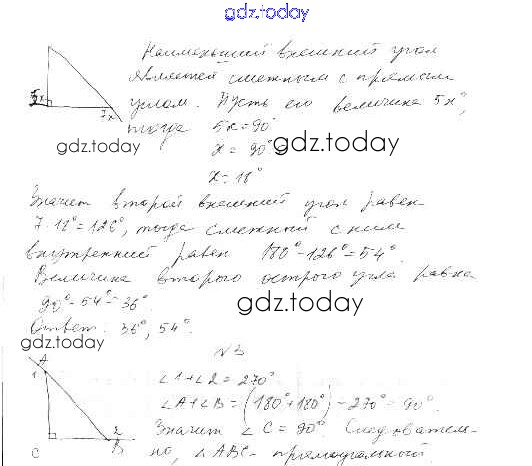 gdz.today
Наименьший внешний угол
является смежным с прямым
углом. Пусть его величина 5x°,
5x 7x
тогда 5x = 90°
gdz.today gdz.today
x = 90°
x = 18°
Значит второй внешний угол равен
7·18° = 126°, тогда смежный с ним
внутренний равен 180° - 126° = 54°.
Величина второго острого угла равна
90° - 54° = 36°
gdz.today
Ответ: 36°, 54°.
gdz.today
N3
A
1 ∠1+∠2 = 270°
∠A+∠B = (180°+180°) - 270° = 90°.
2 Значит ∠C = 90°. Следователь-
C B но, ∠ABC - прямоугольный